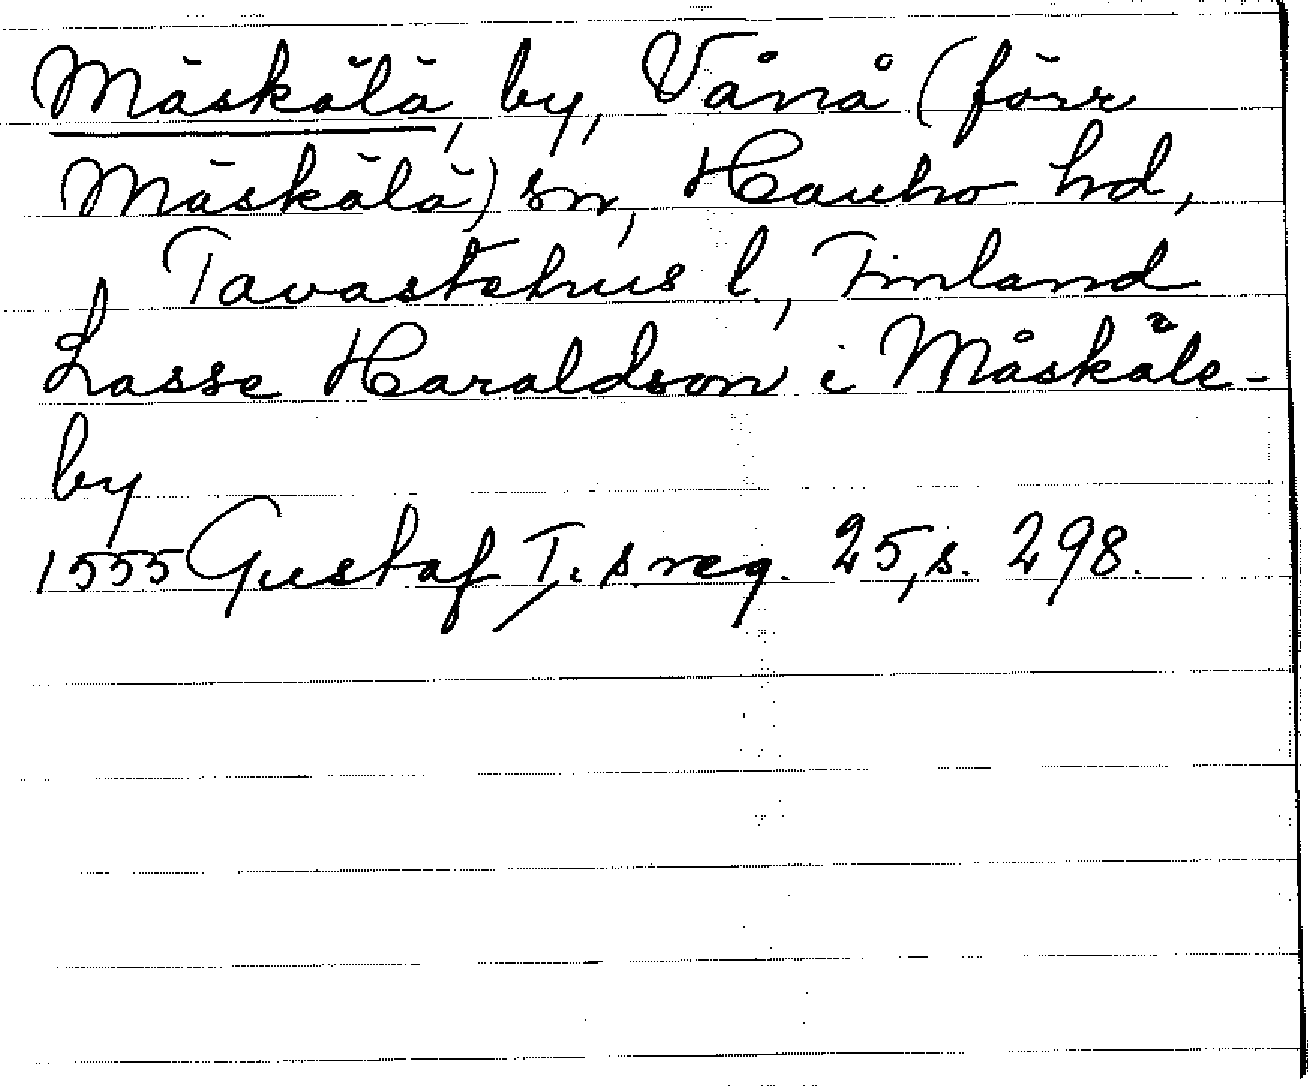 Mäskälä, by, Vånå (förr
Mäskälä) sn, Hauho hd,
Tavastehus l., Finland
Lasse Haraldson i Måskäle-
by
1555 Gustaf I:s reg. 25, s. 298.